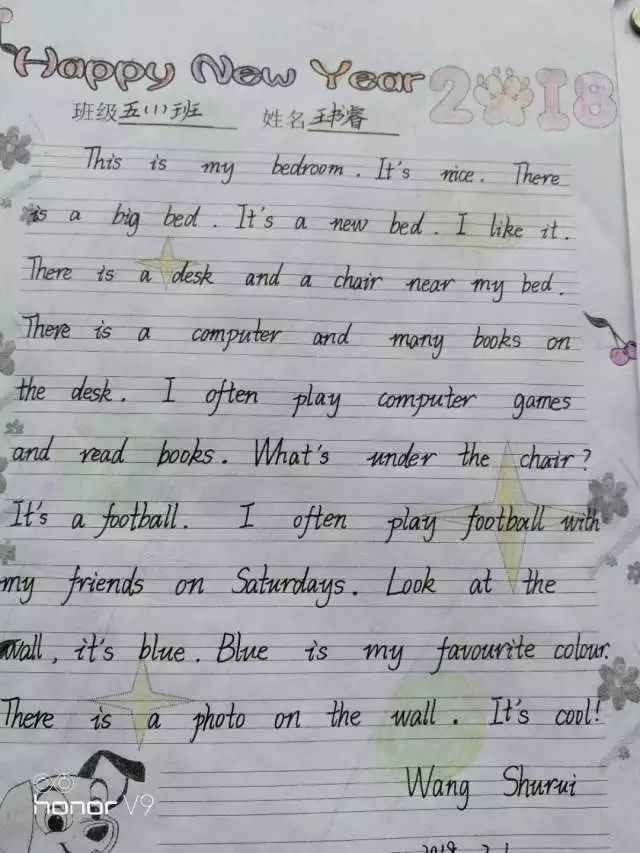 Happy New Year 2018
班级 五(1)班 姓名 王书睿
This is my bedroom. It's nice. There
is a big bed. It's a new bed. I like it.
There is a desk and a chair near my bed.
There is a computer and many books on
the desk. I often play computer games
and read books. What's under the chair?
It's a football. I often play football with
my friends on Saturdays. Look at the
wall, it's blue. Blue is my favourite colour.
There is a photo on the wall. It's cool!
Wang Shurui
honor V9